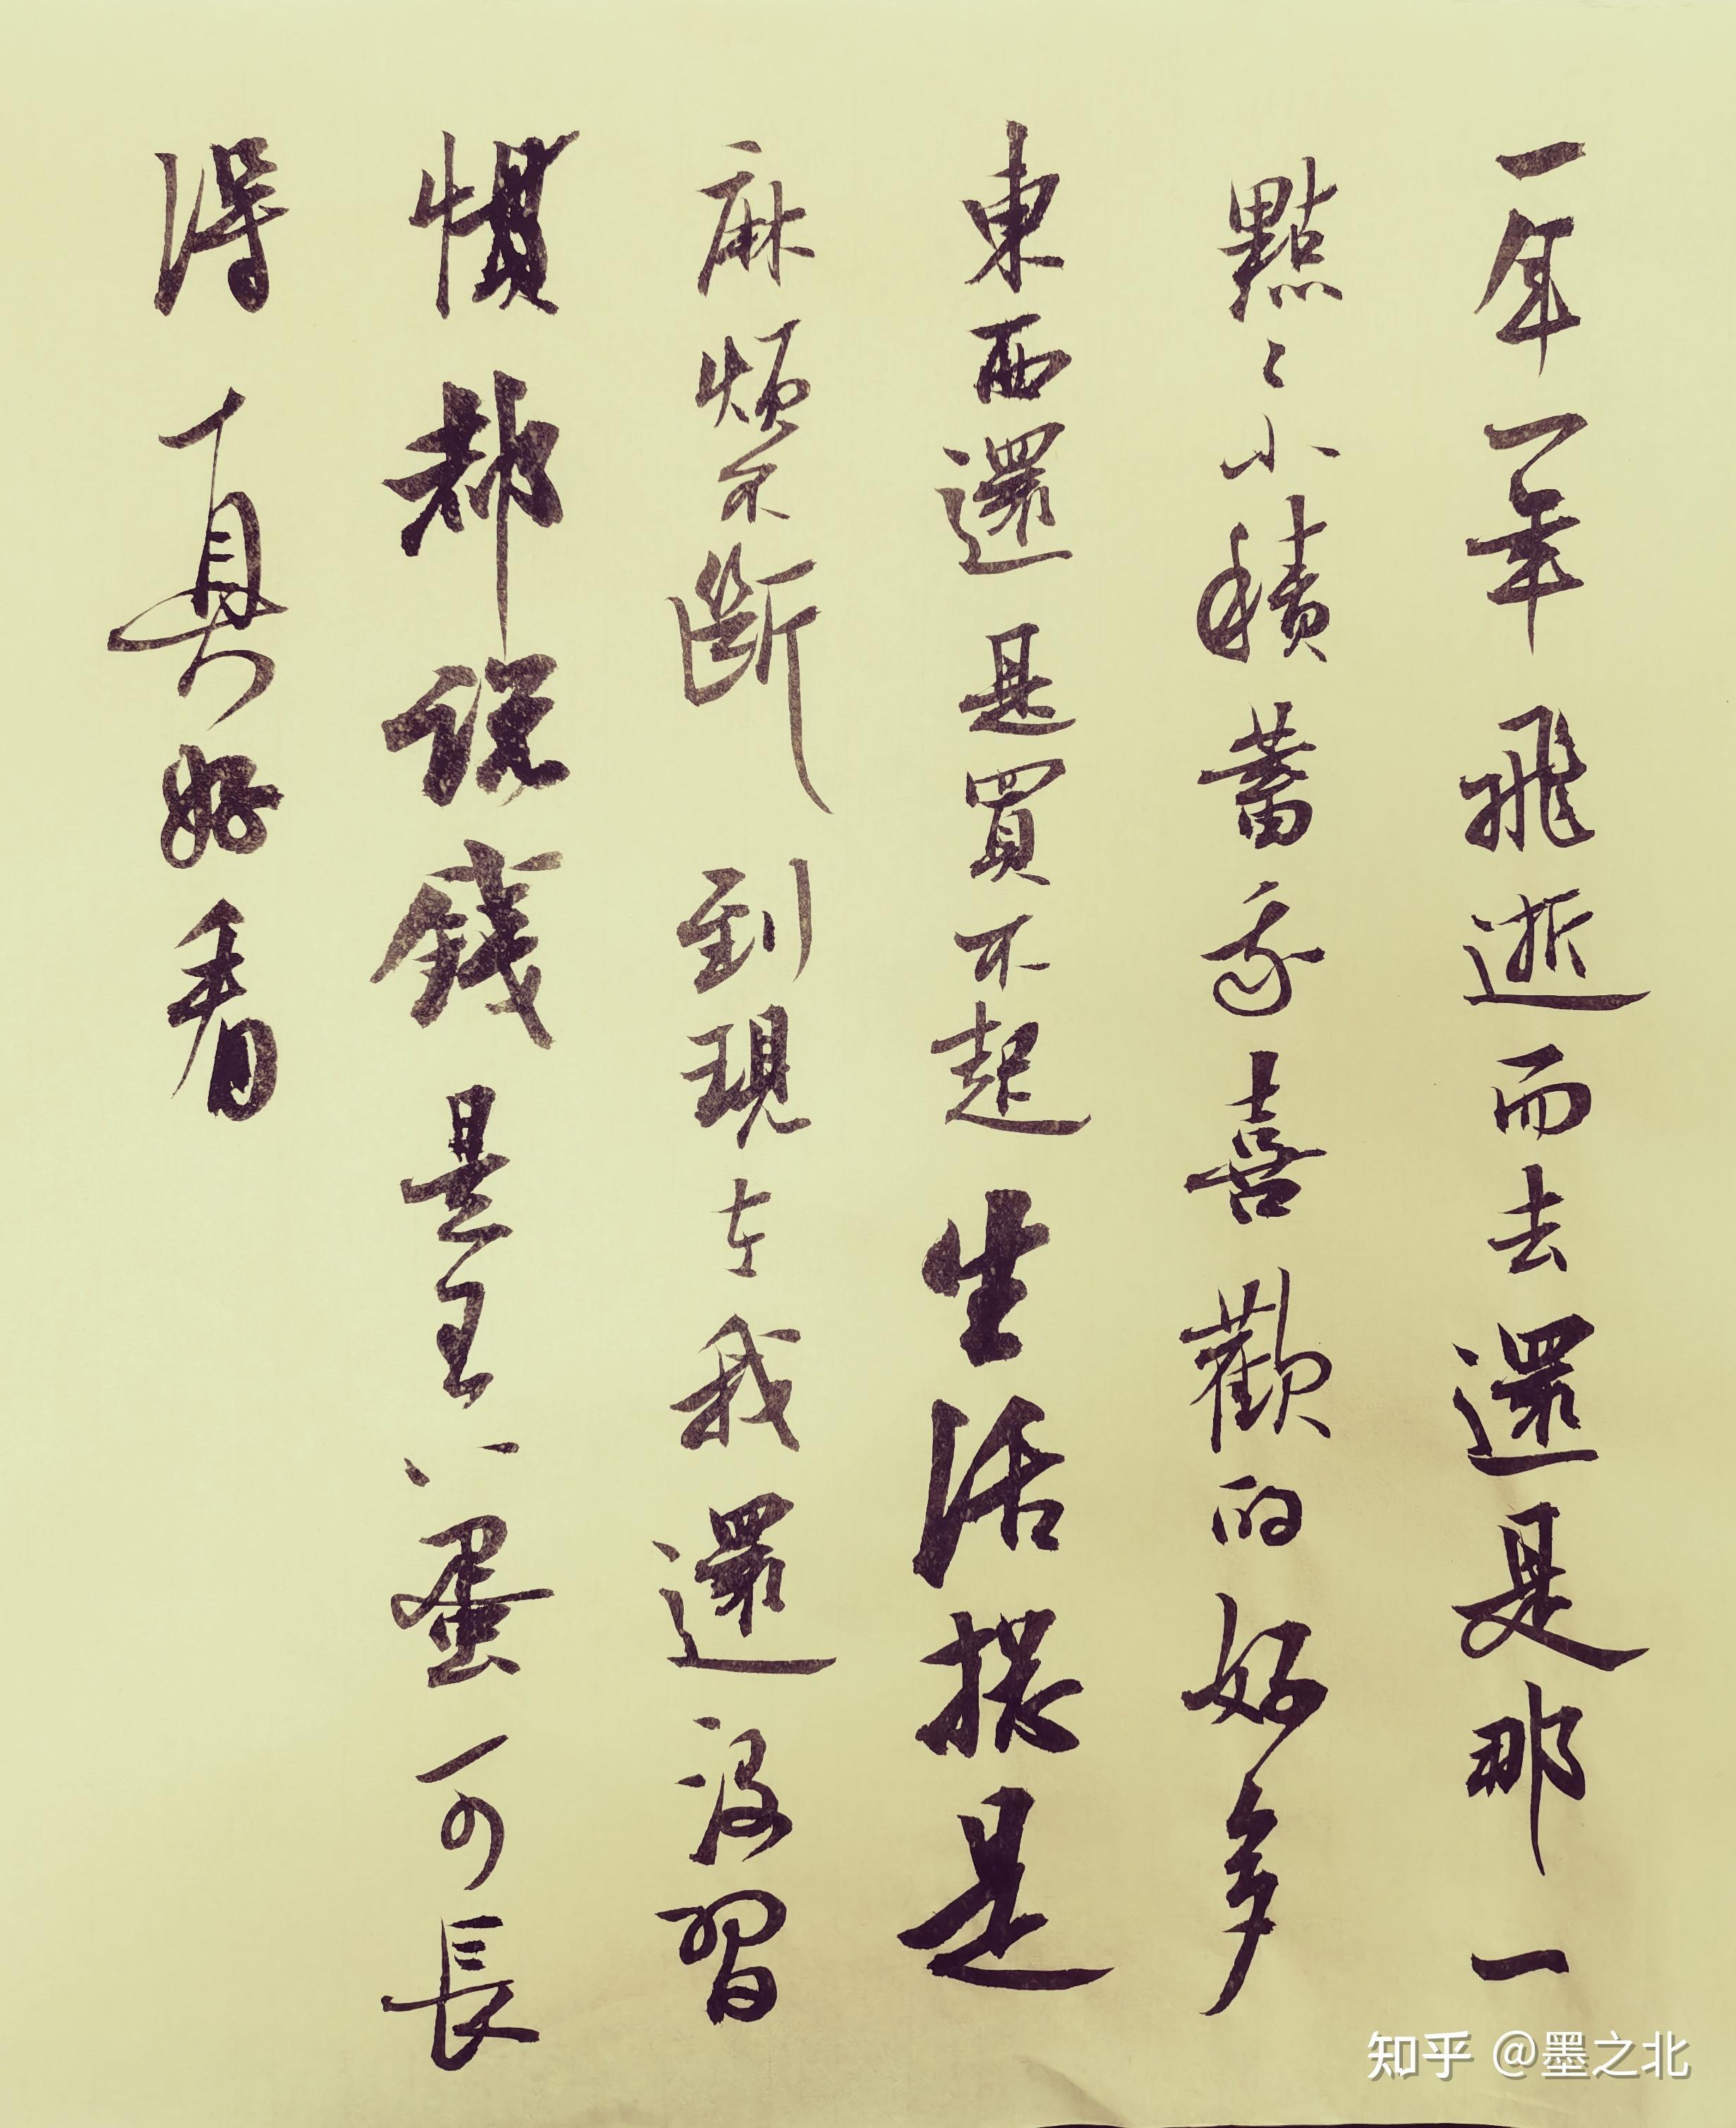 一年一年飛逝而去還是那一
點々小積蓄我喜歡的好多
東西還是買不起生活總是
麻煩不斷到現在我還沒習
慣都説錢是王八蛋可長
得真好看
知乎 @墨之北